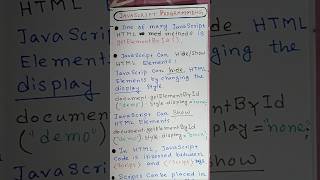 JAVASCRIPT PROGRAMMING
One of many JavaScript
HTML methods is
getElementById().
JavaScript Can Hide/Show
HTML Elements:
JavaScrip Can hide HTML
Elements by changing the
display style.
document.getElementById
("demo").style.display="none";
JavaScript Can Show
HTML Elements
document.getElementById
("demo").style.display="block";
In HTML, JavaScript
Code is inserted between
<script> and </script> tags.
Scripts Can be placed in